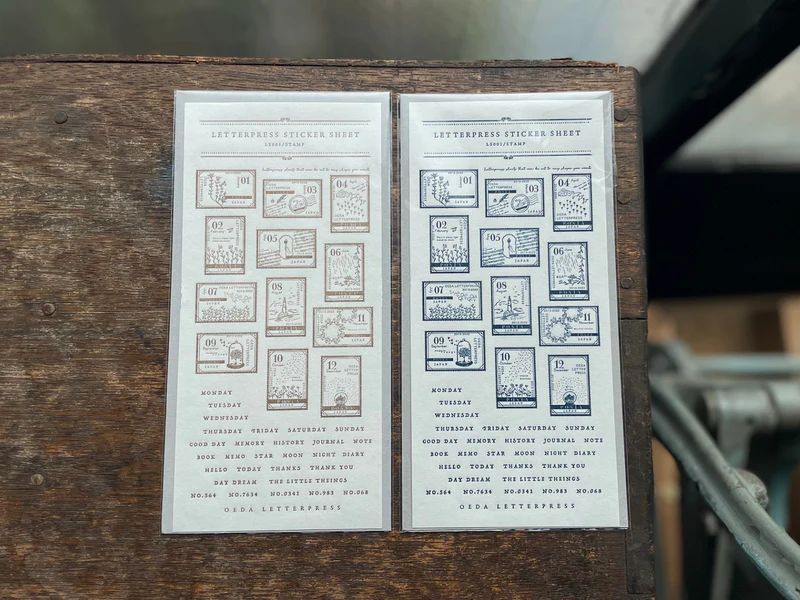 LETTERPRESS STICKER SHEET
LS001/STAMP
01
03
04
02
05
06
07
08
11
09
10
12
MONDAY
TUESDAY
WEDNESDAY
THURSDAY FRIDAY SATURDAY SUNDAY
GOOD DAY MEMORY HISTORY JOURNAL NOTE
BOOK MEMO STAR MOON NIGHT DIARY
HELLO TODAY THANKS THANK YOU
DAY DREAM THE LITTLE THEINGS
NO.564 NO.7634 NO.0341 NO.983 NO.068
OEDA LETTERPRESS
LETTERPRESS STICKER SHEET
LS001/STAMP
01
03
04
02
POSTA
JAPAN
05
JAPAN
06
POSTA
JAPAN
07
JAPAN
08
POSTA
11
JAPAN
09
JAPAN
10
POSTA
12
POSTA
MONDAY
TUESDAY
WEDNESDAY
THURSDAY FRIDAY SATURDAY SUNDAY
GOOD DAY MEMORY HISTORY JOURNAL NOTE
BOOK MEMO STAR MOON NIGHT DIARY
HELLO TODAY THANKS THANK YOU
DAY DREAM THE LITTLE THEINGS
NO.564 NO.7634 NO.0341 NO.983 NO.068
OEDA LETTERPRESS